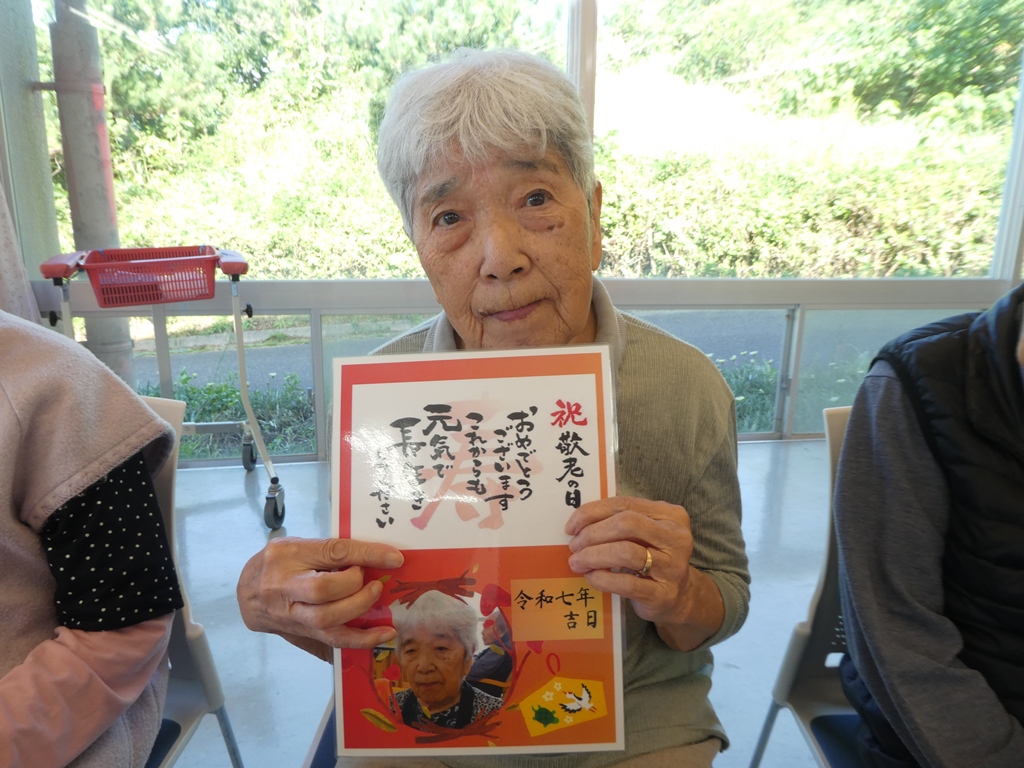 祝 敬老の日
おめでとう
ございます
これからも
元気で
長生き
ください
寿
令和七年
吉日